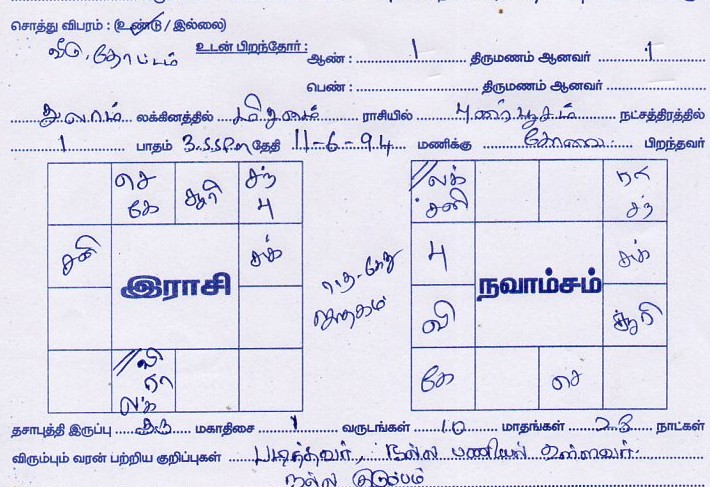 சொத்து விபரம் : (உண்டு / இல்லை)
வீடு, தோட்டம் உடன் பிறந்தோர் : ஆண் : 1 திருமணம் ஆனவர் 1
பெண் : திருமணம் ஆனவர்
துலாம் லக்கினத்தில் மிதுனம் ராசியில் புனர்பூசம் நட்சத்திரத்தில்
1 பாதம் 3.55PM தேதி 11-6-94 மணிக்கு கோவை பிறந்தவர்
செ கே சூரி சந் பு
சனி சுக்
இராசி
வி ரா லக்
ராகு-கேது ஜாதகம்
லக் சனி ரா சந்
பு சுக்
நவாம்சம்
வி சூரி
கே செ
தசாபுத்தி இருப்பு குரு மகாதிசை 1 வருடங்கள் 10 மாதங்கள் 28 நாட்கள்
விரும்பும் வரன் பற்றிய குறிப்புகள் படித்தவர், நல்ல பணியில் உள்ளவர்.
நல்ல குடும்பம்